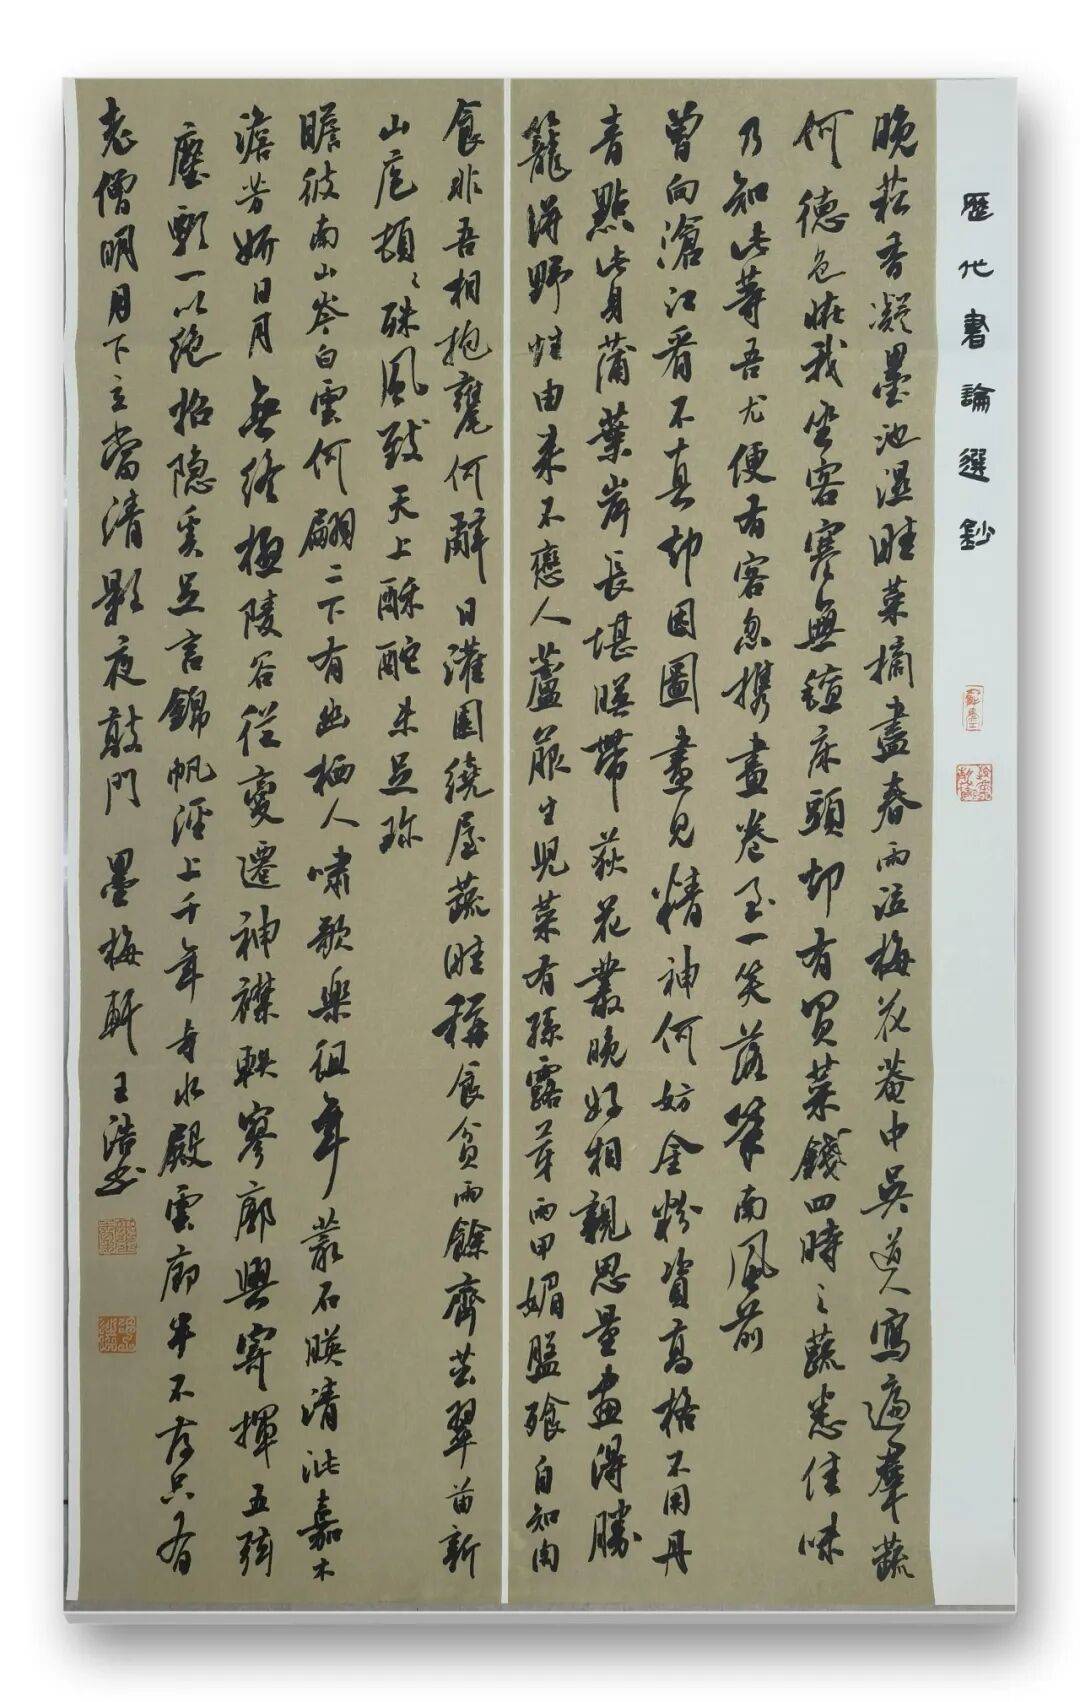 歷代書論選鈔
晚菘香凝墨池濕畦菜摘盡春雨泣梅花菴中吳道人寫遍群蔬
何德色嗟我坐客寒無氈床頭却有買菜錢四時之蔬悉佳味
乃知此等吾尤便有客忽携畫卷至一笑落筆南風前
曾向滄江看不真却因圖畫見精神何妨金粉資高格不用丹
青點此身蒲葉岸長堪映帶荻花叢晚好相親思量畫得勝
籠得野性由來不戀人蘆菔生兒菜有孫露芽雨甲媚盤飧自知肉
食非吾相抱甕何辭日灌園繞屋蔬畦稱食貧雨餘齊茁翠苗新
山庖頓頓殊風致天上酥酡未足珍
瞻彼南山岑白雲何翩二下有幽栖人嘯歌樂徂年叢石映清泚嘉木
澹芳妍日月無終極陵谷從變遷神襟軼寥廓興寄揮五弦
塵
一以絕招隱奚足言錦帆涇上千年寺水殿雲廊半不存只有
老僧明月下立當清影夜敲門 墨梅軒王浩書